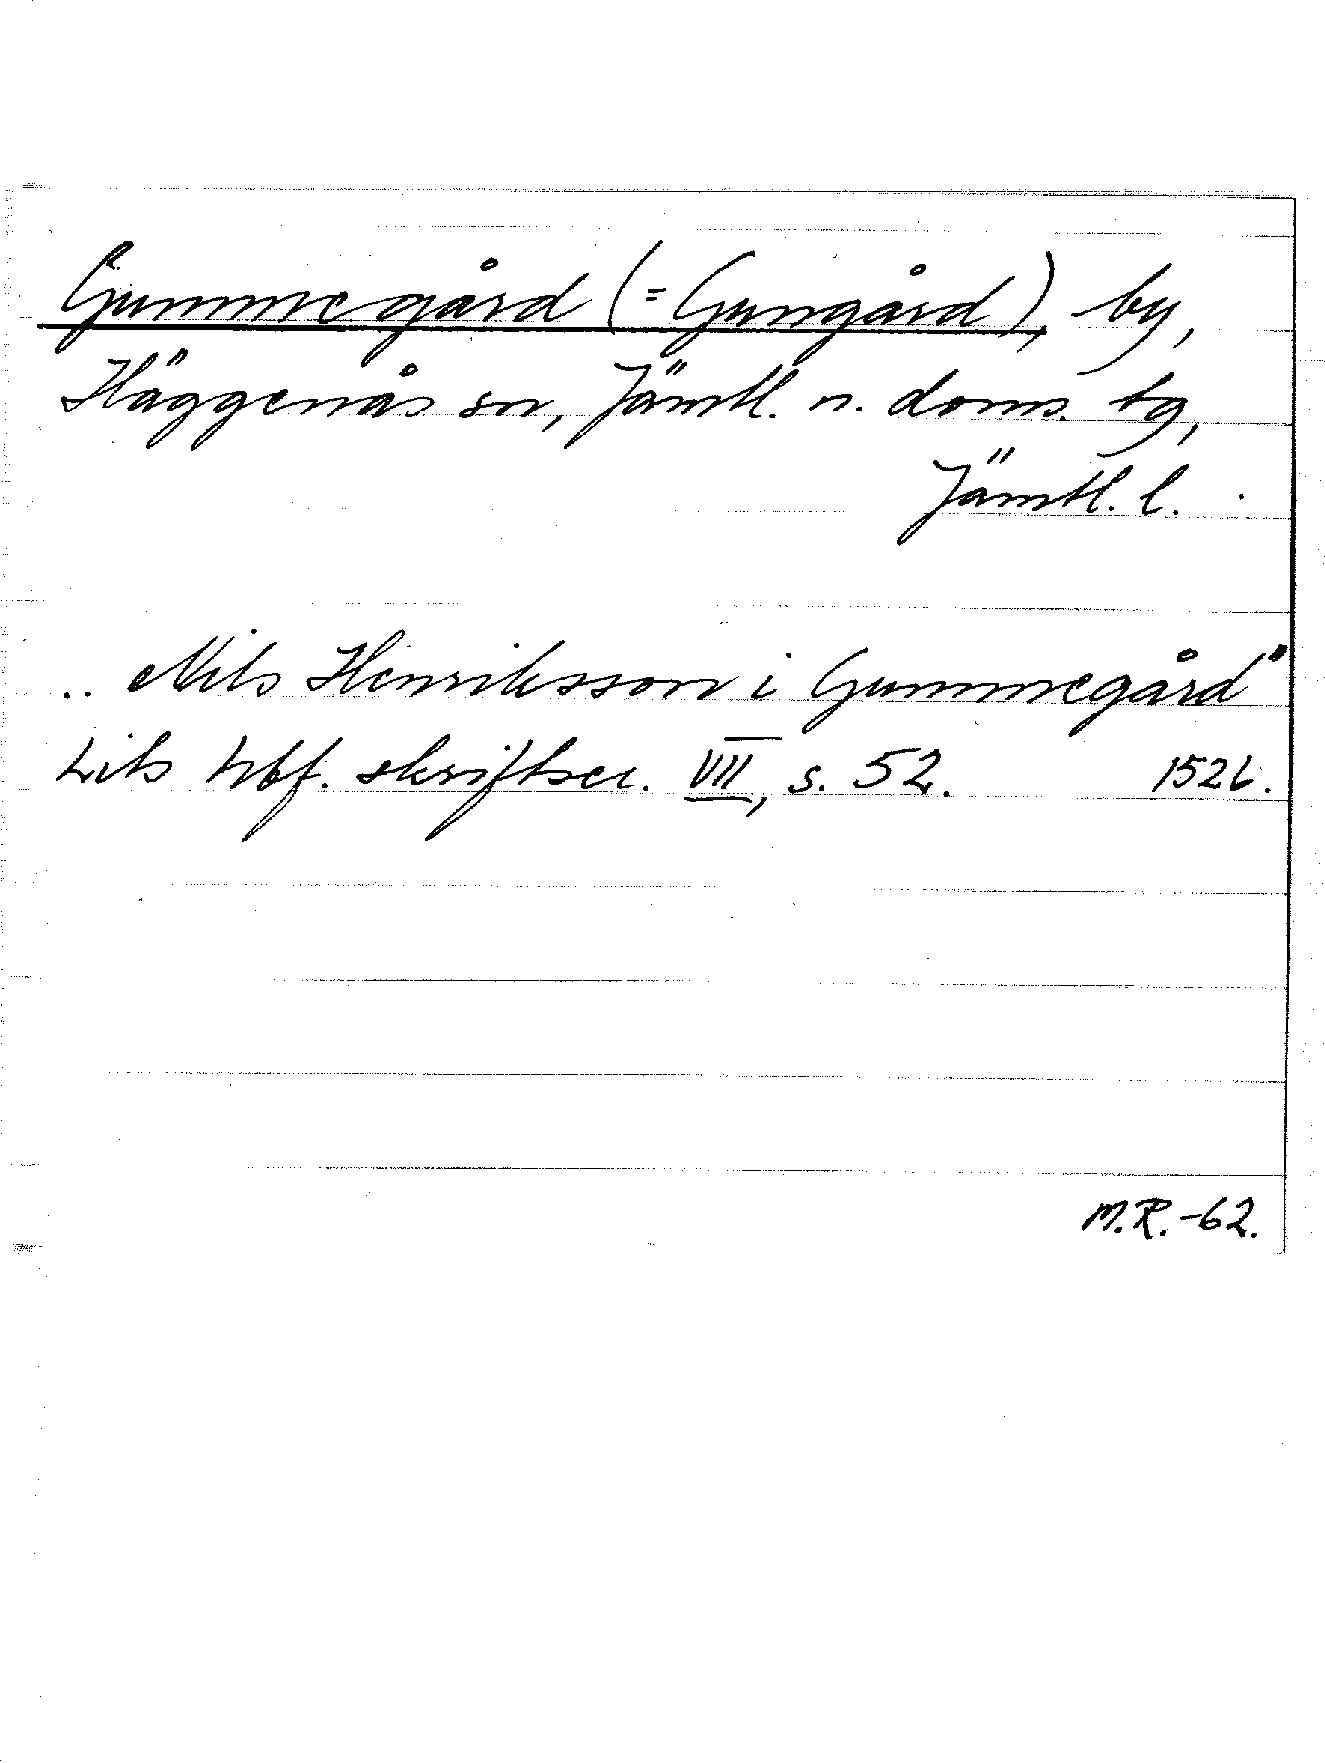 Gummegård (= Gungård), by,
Häggenås sn, Jämtl. n. doms. tg,
Jämtl. l.
.. Nils Henriksson i Gummegård"
Lits hbf. skriftser. VII, s. 52. 1526.
M.R.-62.